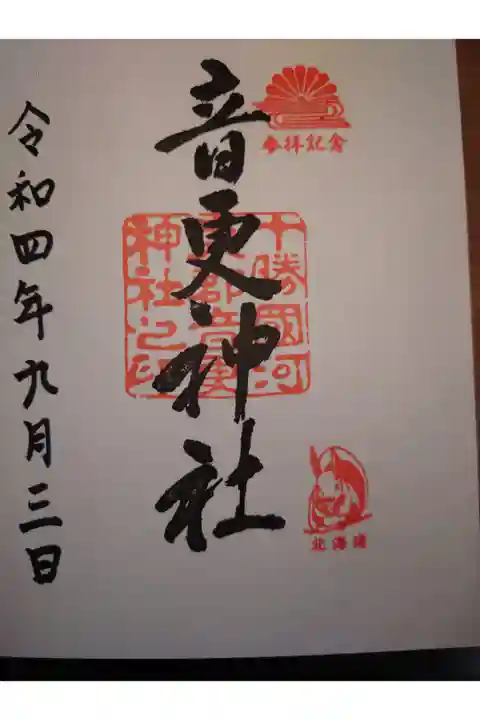 参拝記念
十勝國河
東郡音更
神社之印
音更神社
北海道
令和四年九月三日